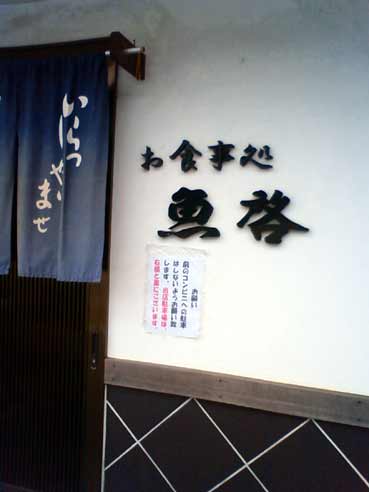 いらっしゃい
ませ
お食事処
魚啓
お願い
前のコンビニへの駐車
はしないようお願い致
します。当店駐車場は、
右横と裏にございます。